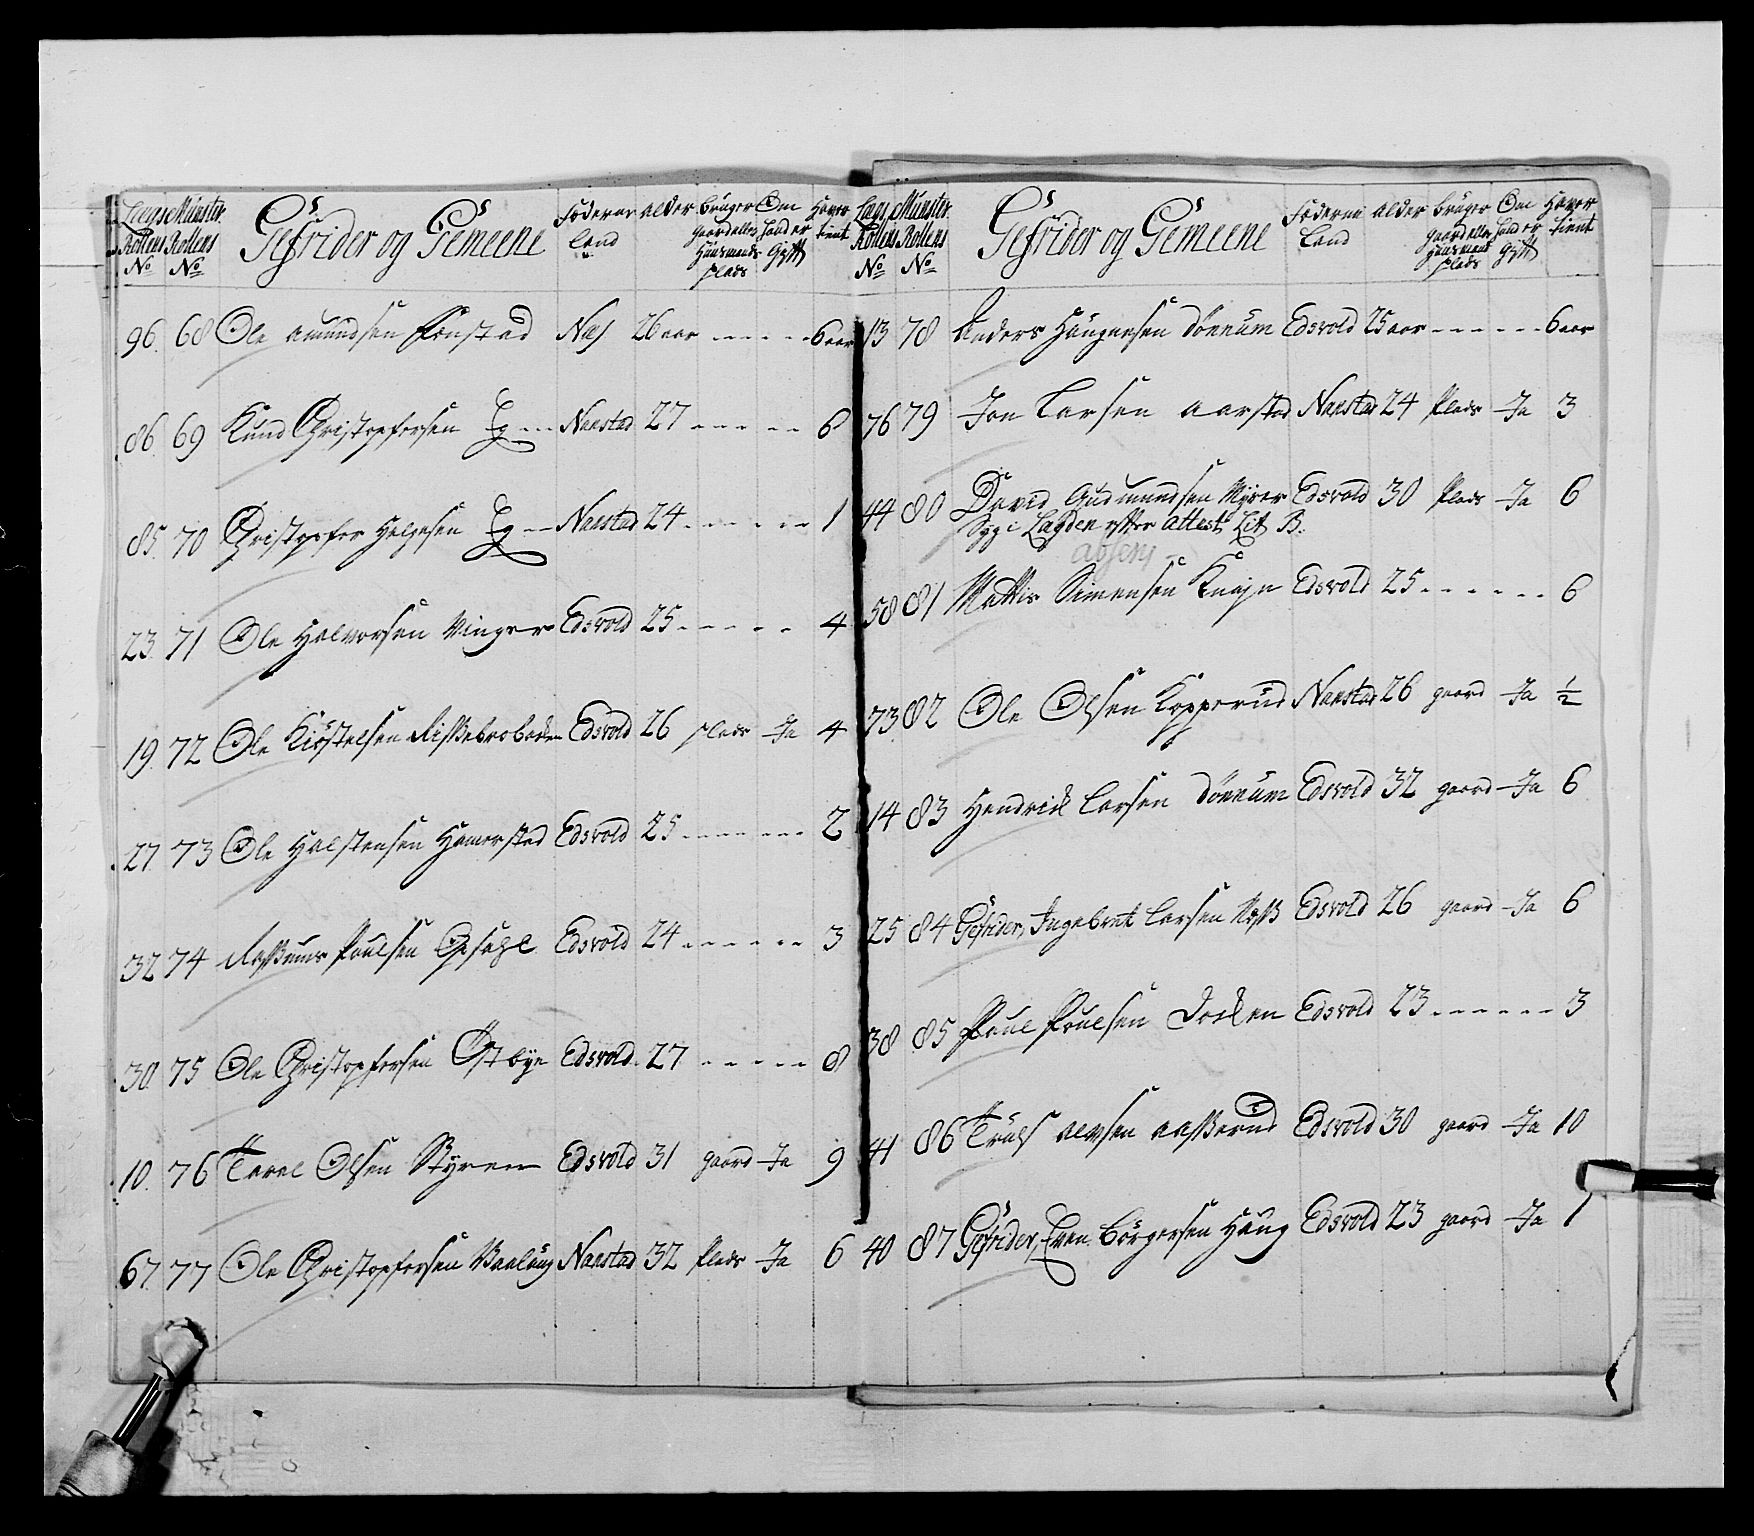 Lægs Rollens No Mönster Rollens No Gefrider og Gemeene Føderne land alder bruger gaard eller Huusmands plads Om hand er Gyft Haver tient
96. 68 Ole amundsen Fonstad Næs 26 aar - - - - - 6 aar
86. 69 Knud Christopfersen Eg - - Nanstad 27 - - - - - 6
85. 70 Christopfer Helgesen Eg - - Nanstad 24 - - - - - - 1
23. 71 Ole Halvorsen Vinger Edsvold 25 - - - - - 4
19. 72 Ole Kiøstelsen Edsvold 26 plads Ja 4
27. 73 Ole Halstensen Hamerstad Edsvold 25 - - - - - - 2
32 74 Rasmus Poulsen Opsahl Edsvold 24 - - - - - - 3
30 75 Ole Christopfersen Østbye Edsvold 27 - - - - - 8
10. 76 Tarel Olsen Styren Edsvold 31 gaard Ja 9
67. 77 Ole Christopfersen Nanstad 32 Plads Ja 6
Lægs Rollens No Mönster Rollens No Gefrider og Gemeene Føderne land alder bruger gaard eller huusmands plads Om hand er gyft Haver tient
13 78 Anders Haagensen Dønnum Edsvold 25 aar - - - - - - 6 aar
76 79 Jon Larsen aarstad Nanstad 24 Plads Ja 3
44 80 David Gudmundsen Myrer Edsvold 30 Plads Ja 6
Syg i Lægden efter Attest Lit B.
absens
58 81 Mattis Simensen Edsvold 25 - - - - - - 6
73 82 Ole Olsen Kopperud Nanstad 26 gaard Ja ½
14 83 Hendrick Larsen Dønnum Edsvold 32 gaard Ja 6
25 84 Gefrider, Ingebret Larsen Edsvold 26 gaard Ja 6
38 85 Poul Poulsen Edsvold 23 - - - - - - 3
41 86 Truls Edsvold 30 gaard Ja 10
40 87 Gefrider, Even Børgersen Haug Edsvold 23 gaard Ja 1